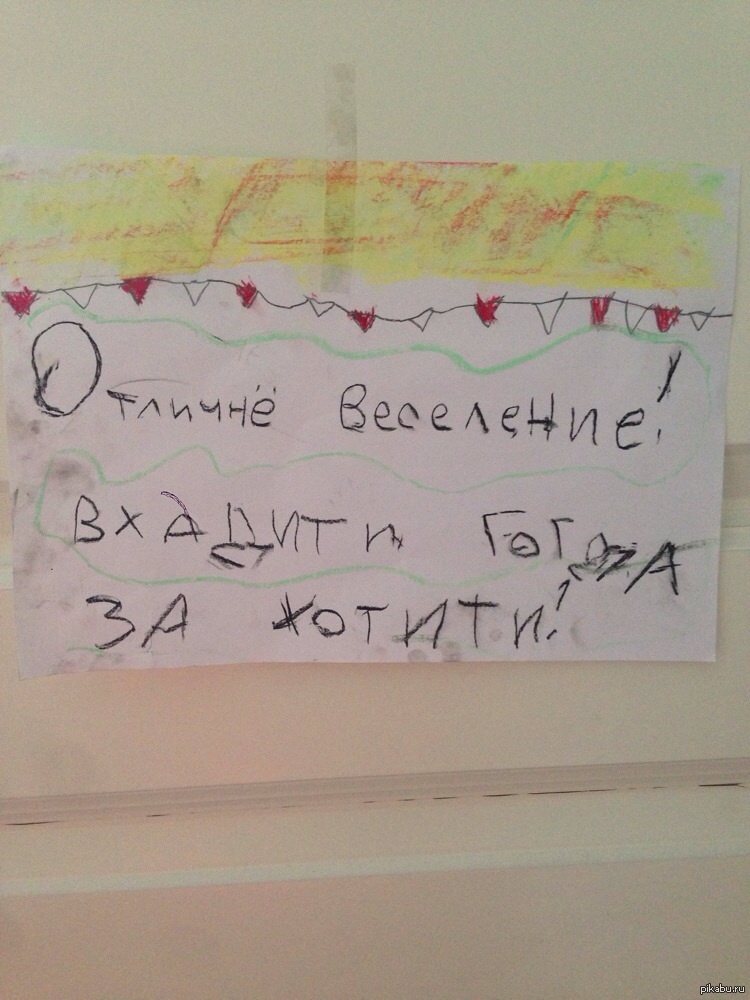 Отличнё Веселение!
ВХАДИТи ГОГДА
ЗА ХОТИТи!
pikabu.ru